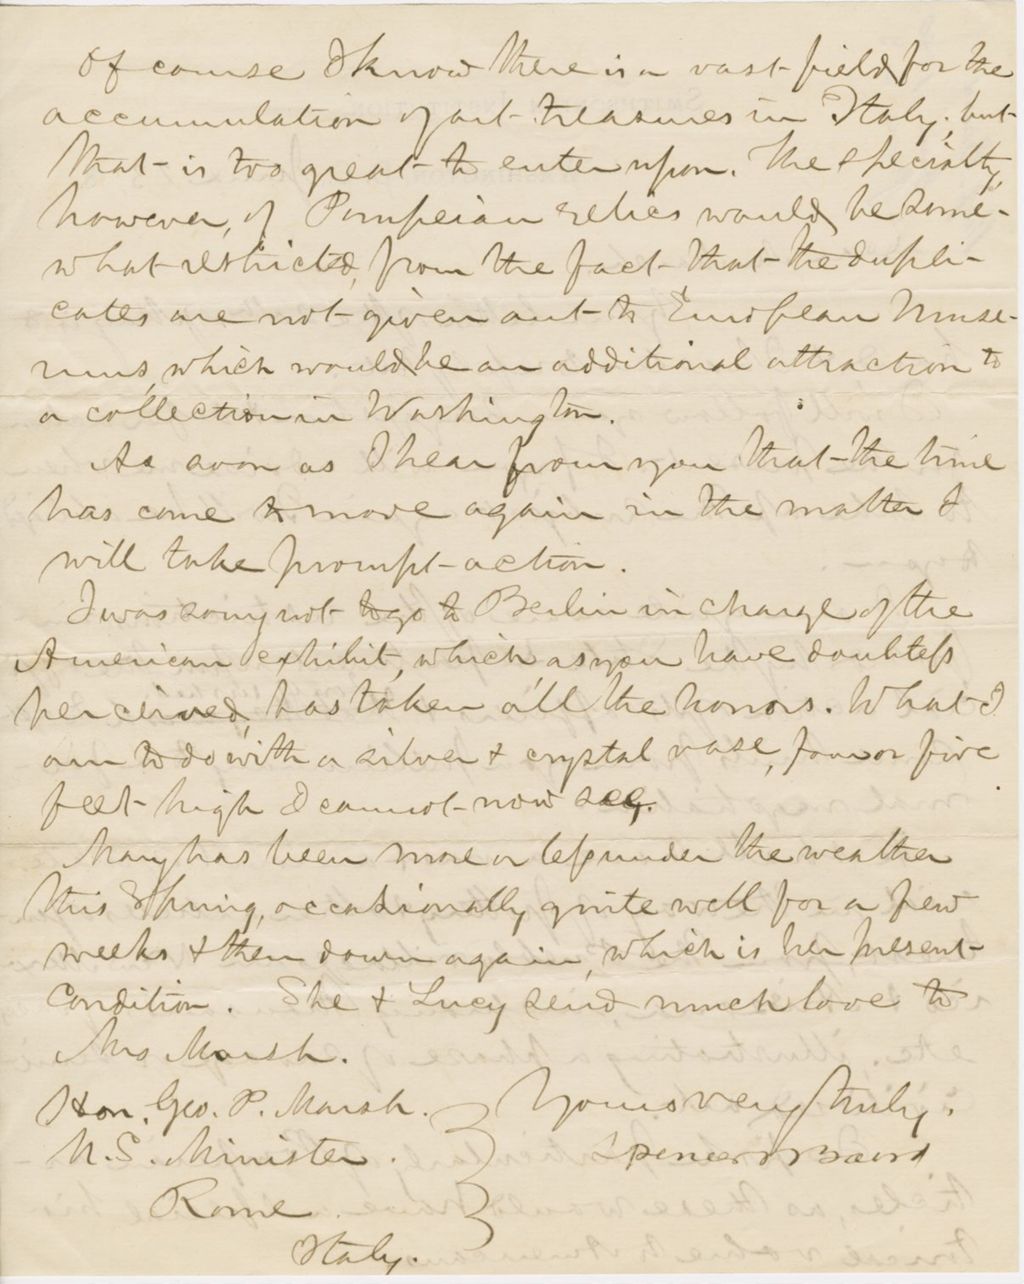 Of course I know there is a vast field for the
accumulation of art treasures in Italy, but
that is too great to enter upon. The specialty,
however, of Pompeian relics would be some-
what restricted, from the fact that the dupli-
cates are not given out to European Muse-
ums, which would be an additional attraction to
a collection in Washington.
As soon as I hear from you that the time
has come to move again in the matter I
will take prompt action.
I was sorry not to go to Berlin in charge of the
American exhibit, which as you have doubtless
perceived, has taken all the honors. What I
am to do with a silver & crystal vase, four or five
feet high I cannot now see.
Mary has been more or less under the weather
this Spring, occasionally quite well for a few
weeks & then down again, which is her present
condition. She & Lucy send much love to
Mrs Marsh.
Yours very truly,
Spencer F Baird
Hon. Geo. P. Marsh.
U.S. Minister.
Rome.
Italy.